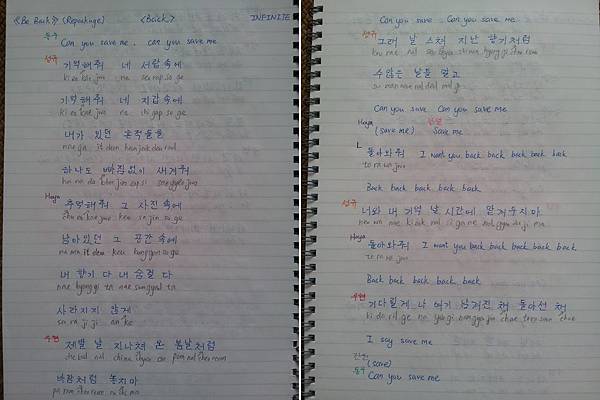 《Be Back》 (Repackage) <Back> INFINITE
동우
Can you save me. can you save me
성규
기억해줘 네 서랍속에
ki eo kae jwo ne seo rap so ge
기억해줘 네 지갑속에
ki eo kae jwo ne chi gap so ge
내가 있던 흔적들을
nae ga it deon heun jeok deu reul
하나도 빠짐없이 새겨줘
ha na do
Hoya
추억해줘 그 사진속에
chu eo kae jwo keu sa jin so ge
남아있던 그 공간속에
na ma it deon keu
내 향기 다 내 숨결 다
nae hyang gi ta nae sum gyeol ta
사라지지 않게
sa ra ji ji an ke
우현
제발 날 지나쳐 온 봄날처럼
che bal nal chi na
바람처럼 놓지마
pa ram cheo reom
Can you save Can you save me
성규
그래 날 스쳐 지난 향기처럼
keu rae nal
수많은 날들 잊고
su
Can you save Can you save me
Hoya
(save me) Save me
L
돌아와줘 I want you back back back back back
to ra wa jwo
Back back back back back
성규
너와 내 기억 날 시간에 맡겨두지마
Hoya
돌아와줘 I want you back back back back back
to ra wa jwo
Back back back back back
우현
기다릴게 나 여기 남겨진 채 돌아선 채
ki da ril ge na yeo gi nam gyeo jin chae
I say save me
(save)
동우
Can you save me